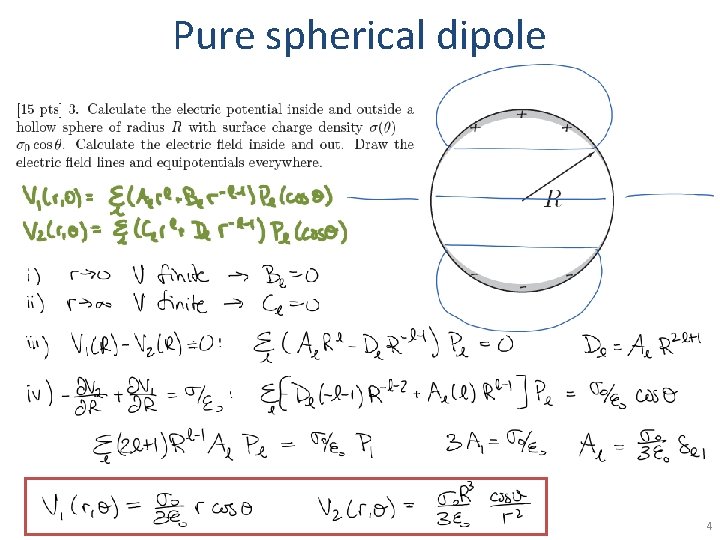 Pure spherical dipole
[15 pts] 3. Calculate the electric potential inside and outside a
hollow sphere of radius R with surface charge density σ(θ)
σ₀ cos θ. Calculate the electric field inside and out. Draw the
electric field lines and equipotentials everywhere.
+ + +
R
- - -
V₁(r,θ) = Σₗ (Aₗ rˡ + Bₗ r⁻ˡ⁻¹) Pₗ(cosθ)
V₂(r,θ) = Σₗ (Cₗ rˡ + Dₗ r⁻ˡ⁻¹) Pₗ(cosθ)
i) r→0 V finite → Bₗ = 0
ii) r→∞ V finite → Cₗ = 0
iii) V₁(R) - V₂(R) = 0: Σₗ (Aₗ Rˡ - Dₗ R⁻ˡ⁻¹) Pₗ = 0 Dₗ = Aₗ R²ˡ⁺¹
iv) -∂V₂/∂R + ∂V₁/∂R = σ/ε₀: Σₗ [-Dₗ(-l-1) R⁻ˡ⁻² + Aₗ(l) Rˡ⁻¹] Pₗ = σ₀/ε₀ cosθ
Σₗ (2l+1) Rˡ⁻¹ Aₗ Pₗ = σ₀/ε₀ P₁ 3A₁ = σ₀/ε₀ Aₗ = σ₀/3ε₀ δₗ₁
V₁(r,θ) = σ₀/3ε₀ r cosθ V₂(r,θ) = σ₀R³/3ε₀ cosθ/r²
4